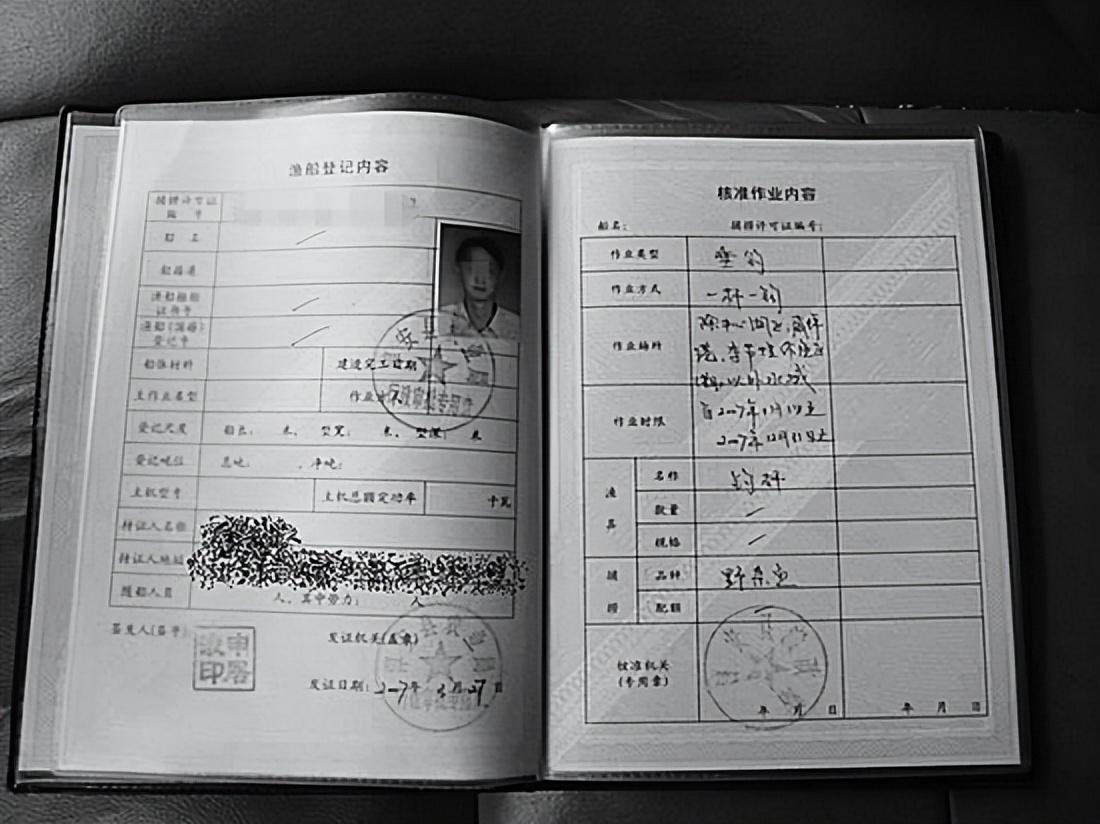 渔船登记内容
捕捞许可证
编号
船主
船籍港
渔船检验
证书号
渔船(国籍)
登记号
船体材料
建造完工日期
主作业类型
登记尺度 船长: 米, 型宽: 米, 型深: 米
登记吨位 总吨: , 净吨:
主机型号 主机总额定功率 千瓦
持证人名称
持证人地址
随船人员 人, 其中劳力: 人
签发人(签字) 发证机关(盖章)
发证日期: 2007年3月27日
核准作业内容
船名: 捕捞许可证编号:
作业类型 垂钓
作业方式 一杆一钩
作业场所
以外水域
作业时限 自2007年1月1日至
2007年12月31日止
渔具
名称 钓杆
数量
规格
捕捞
品种 野杂鱼
配额
核准机关
(专用章)
年 月 日
年 月 日